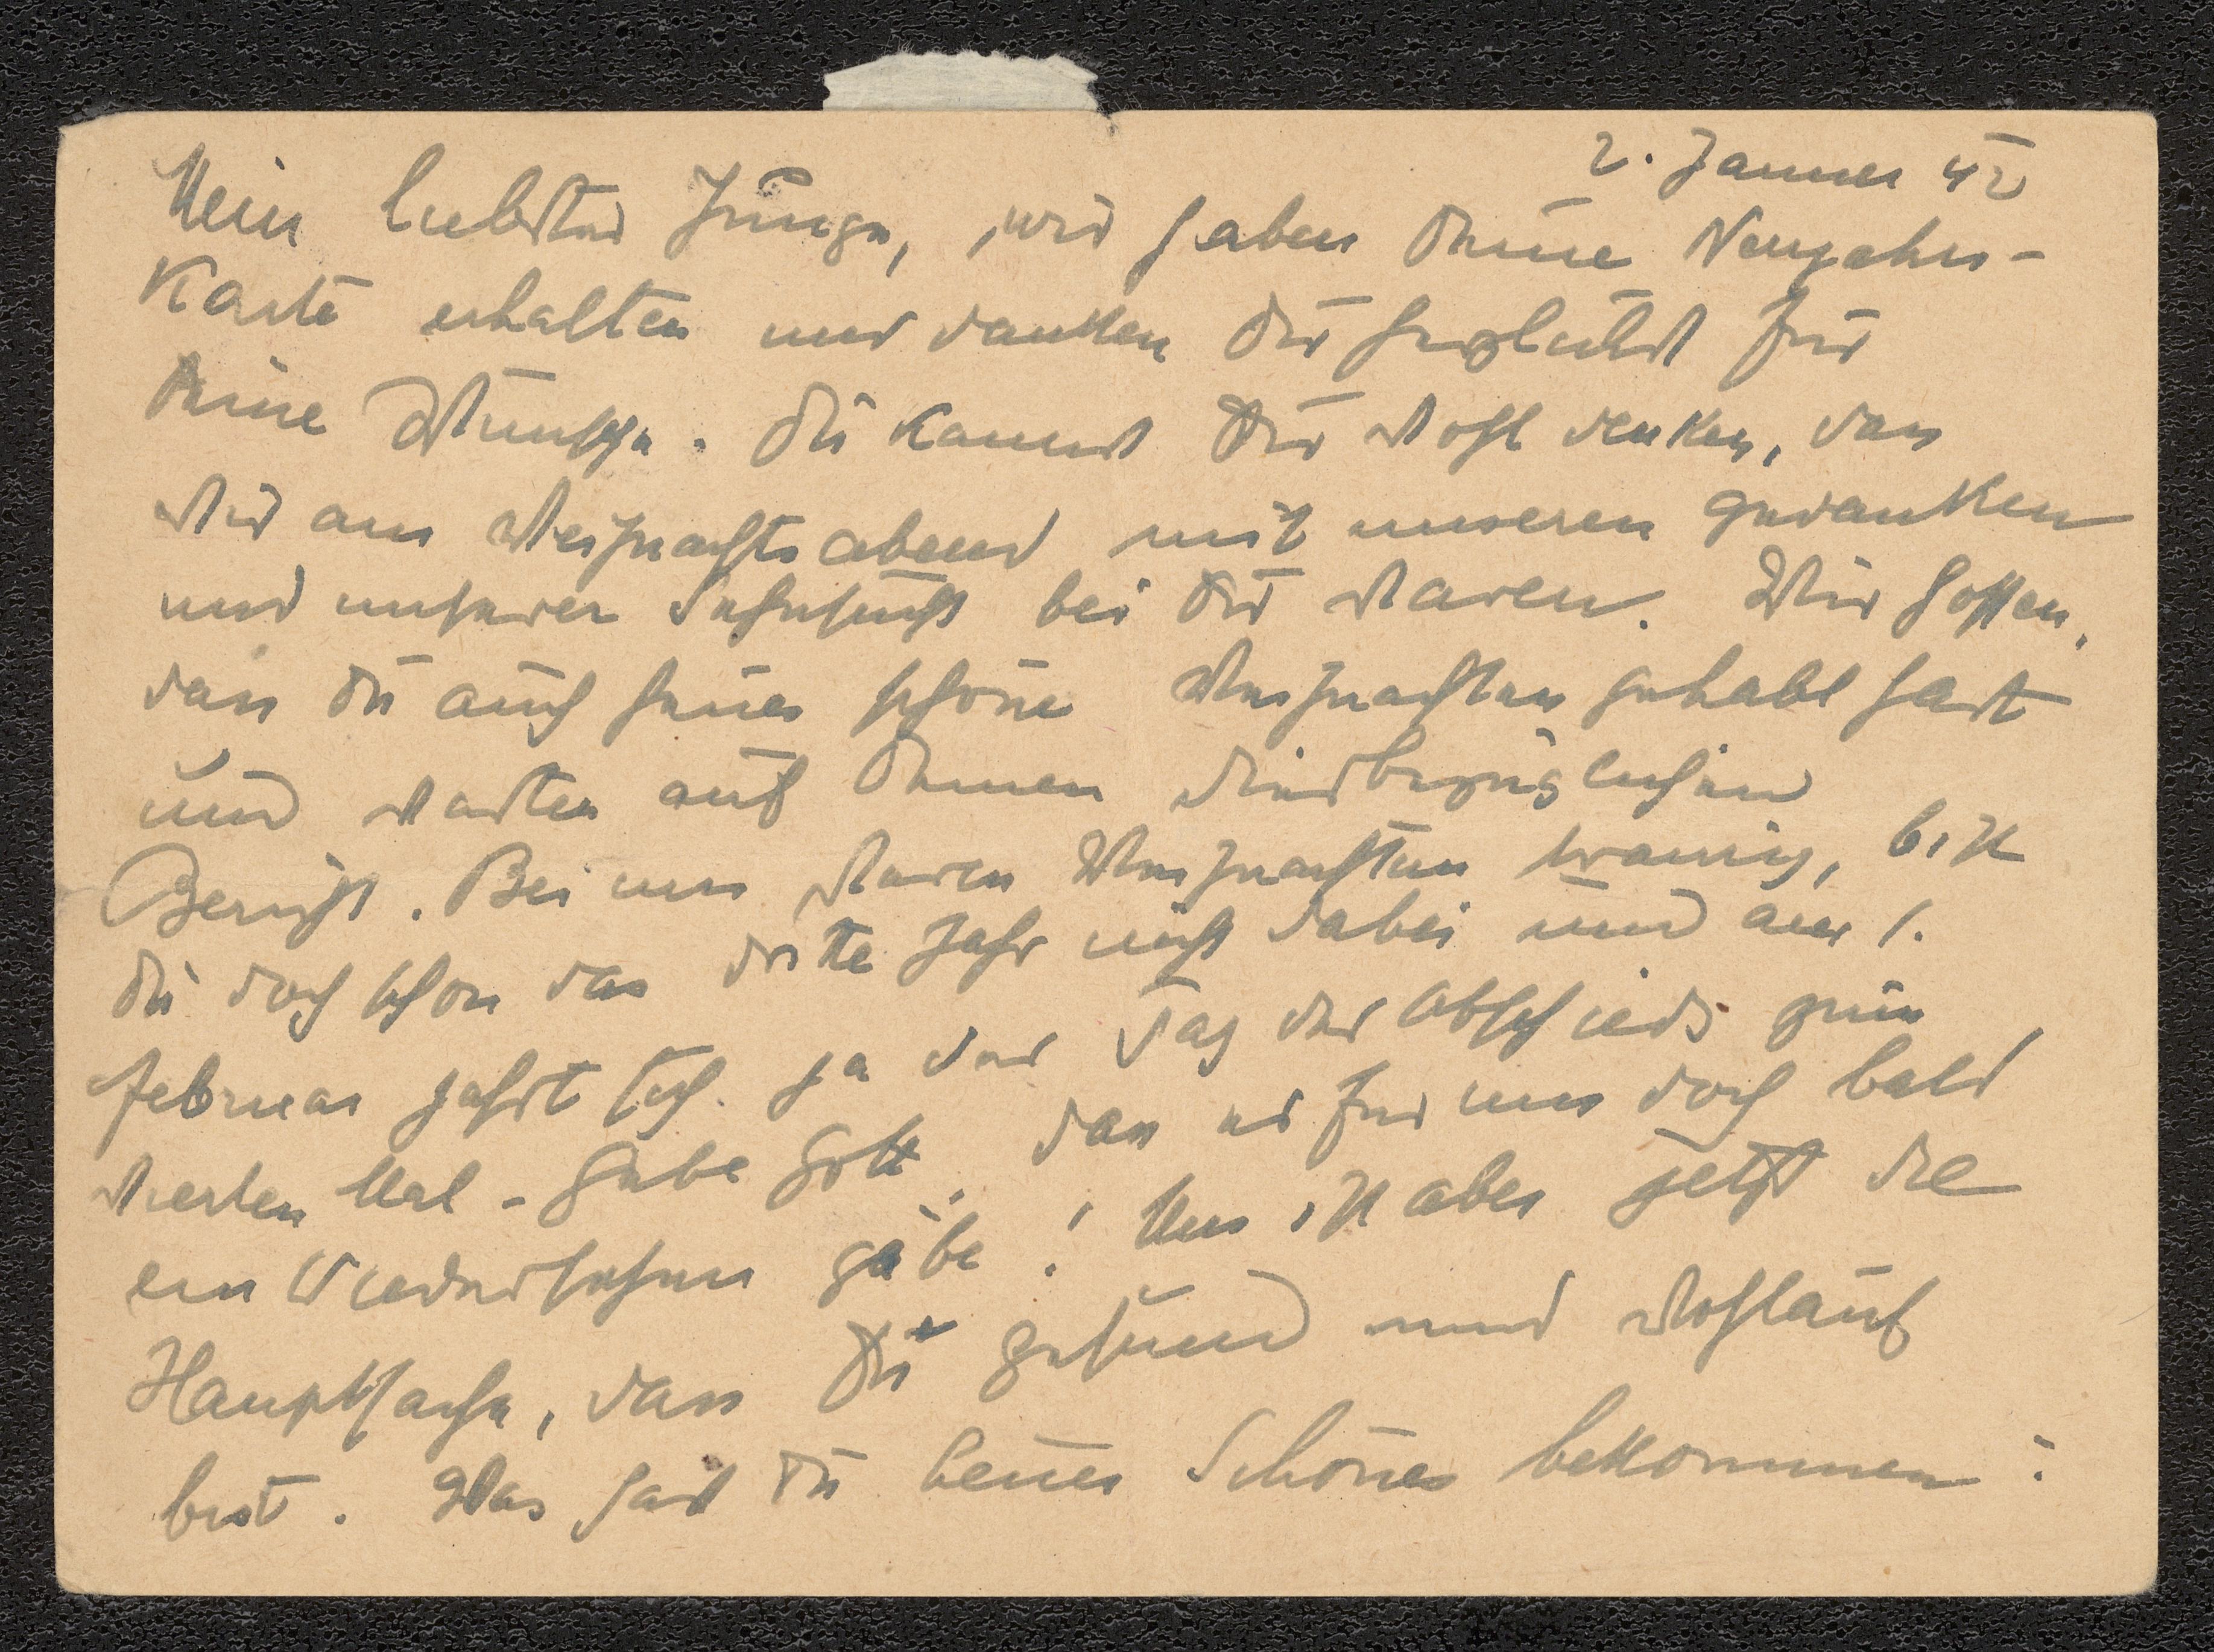 2. Jänner 42
Mein liebster Junge, wir haben Deine Neujahrs-
Karte erhalten und danken Dir herzlichst für
Deine Wünsche. Du kannst Dir wohl denken, dass
wir am Weihnachtsabend mit unseren Gedanken
und unserer Sehnsucht bei Dir waren. Wir hoffen,
dass Du auch heuer schöne Weihnachten gehabt hast
und warten auf Deinen diesbezüglichen
Bericht. Bei uns waren Weihnachten traurig, bist
Du doch schon das dritte Jahr nicht dabei und am 1.
Februar jährt sich ja der Tag des Abschieds zum
vierten Mal - Gebe Gott, dass es für uns doch bald
ein Wiedersehen gäbe! Uns ist aber jetzt die
Hauptsache, dass Du gesund und wohlauf
bist. Was hast Du heuer Schönes bekommen?